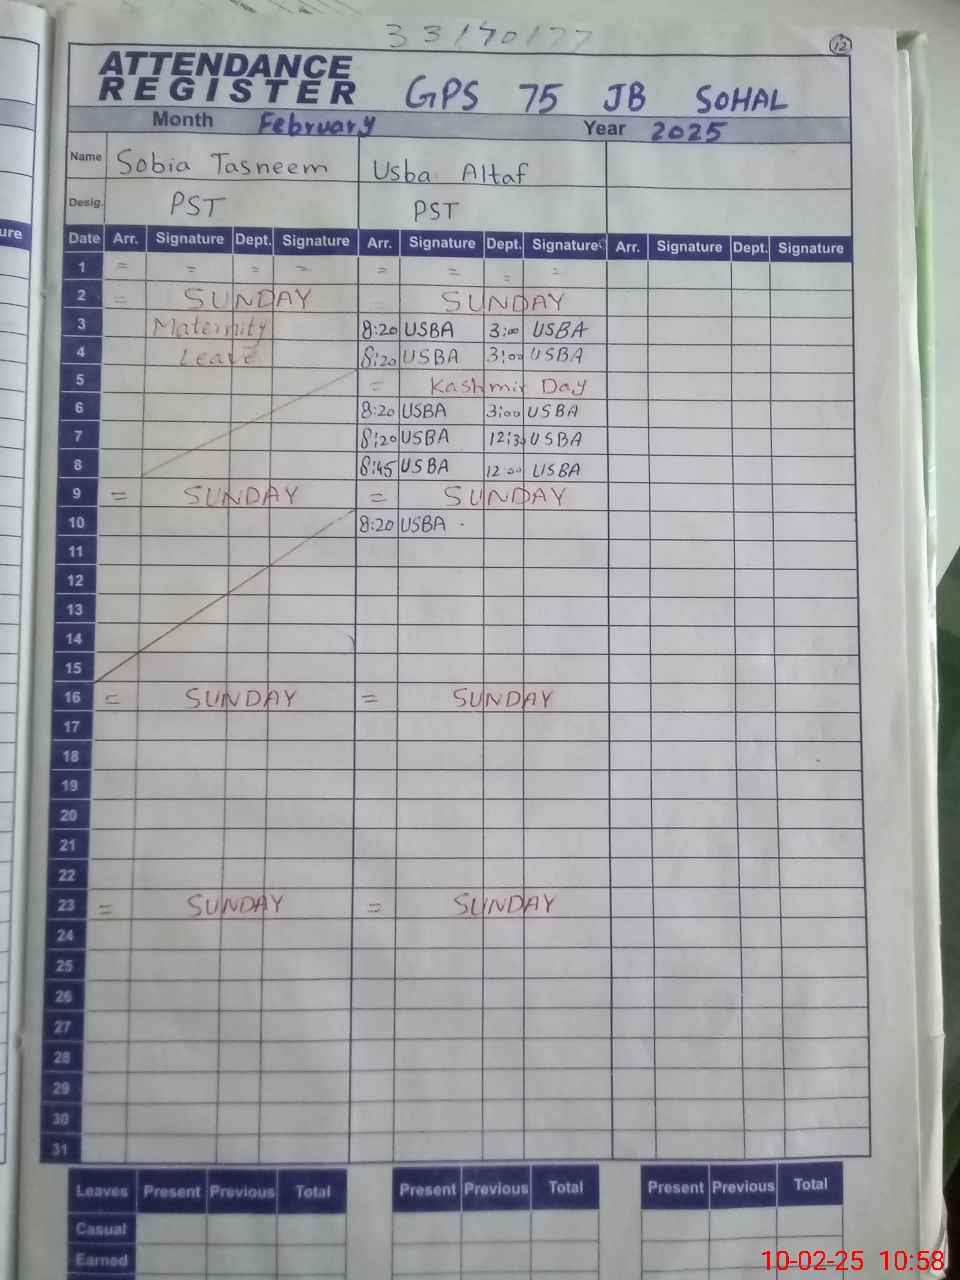 33170177
12
ATTENDANCE
REGISTER GPS 75 JB SOHAL
Month February Year 2025
Name Sobia Tasneem Usba Altaf
Desig. PST PST
ure
Date Arr. Signature Dept. Signature Arr. Signature Dept. Signature Arr. Signature Dept. Signature
1 = = = = = = = =
2 = SUNDAY = SUNDAY
3 Maternity 8:20 USBA 3:00 USBA
4 Leave 8:20 USBA 3:00 USBA
5 = Kashmir Day
6 8:20 USBA 3:00 USBA
7 8:20 USBA 12:30 USBA
8 8:45 USBA 12:00 USBA
9 = SUNDAY = SUNDAY
10 8:20 USBA
11
12
13
14
15
16 = SUNDAY = SUNDAY
17
18
19
20
21
22
23 = SUNDAY = SUNDAY
24
25
26
27
28
29
30
31
Leaves Present Previous Total Present Previous Total Present Previous Total
Casual
Earned
10-02-25 10:58